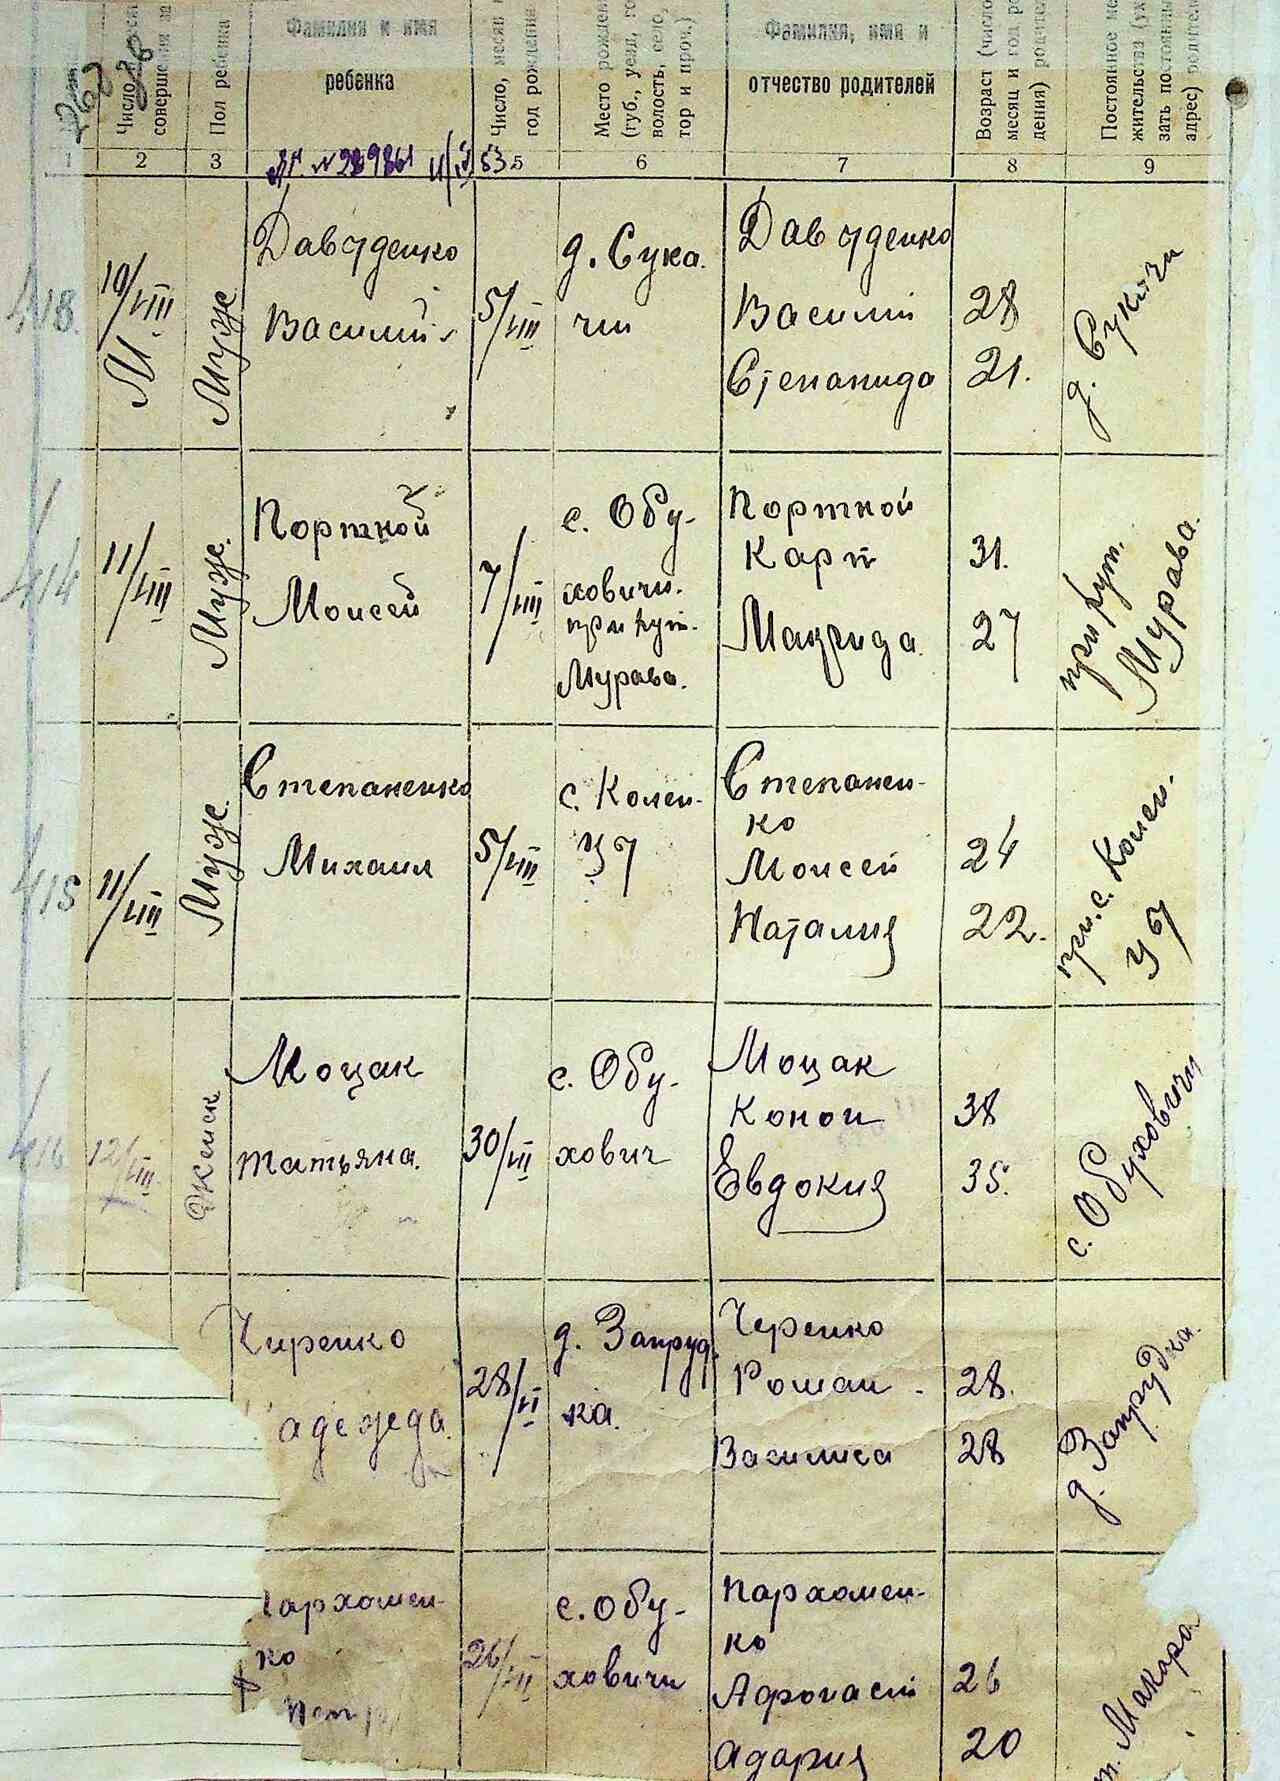 Число
совершения за
Пол ребенка
Фамилия и имя
ребенка
Число, месяц
год рождения
Место рожден
(губ., уезд, го
волость, село,
тор и проч.)
Фамилия, имя и
отчество родителей
Возраст (число
месяц и год ро
дения) родите
Постоянное ме
жительства (ук
зать постоянны
адрес) родител
1 2 3 5 6 7 8 9
№ 289861
418
10/VIII
М
Муж
Давуденко
Василий
5/VIII
д. Сука.
чи
Давуденко
Василий
Степанида
28
21.
д. Сукачи
414
11/VIII
Муж.
Портной
Моисей
7/VIII
с. Обу-
ховичи.
при хут.
Мурава.
Портной
Карп
31.
27
при хут.
Мурава.
415
11/VIII
Муж.
Степаненко
Михаил
5/VIII
с. Колен-
Степанен-
ко
Моисей
Наталия
24
22.
при. с. Колен.
416
12/VIII
Женск
Моцак
Татьяна.
30/VII
с. Обу-
хович
Моцак
Конон
Евдокия
38
35.
с. Обуховичи
Чиренко
адежда.
28/VI
д. Запруд.
ка.
Черенко
Роман
Василиса
28.
28
д. Запрудка.
архомен-
ко
Петр
26/VII
с. Обу-
ховичи
Пархомен-
ко
Афонасий
Адария
26
20
Макара